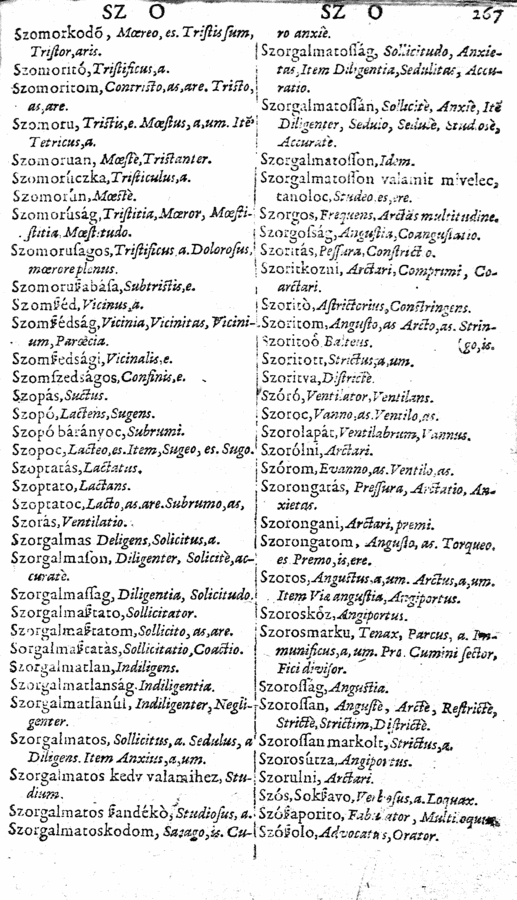 SZ O
SZ O 267
Szomorkodō, Mœreo, es. Tristis sum,
Tristor, aris.
Szomoritó, Tristificus, a.
Szomoritom, Contristo, as, are. Tristo,
as, are.
Szomoru, Tristis, e. Mœstus, a, um. Itē
Tetricus, a.
Szomoruan, Mœstè, Tristanter.
Szomorúczka, Tristiculus, a.
Szomorún, Mœstè.
Szomorúság, Tristitia, Mœror, Mœsti-
stitia, Mœstitudo.
Szomoruſagos, Tristificus, a. Dolorosus,
mœrore plenus.
Szomoruſzabáſa, Subtristis, e.
Szomſzéd, Vicinus, a.
Szomſzédság, Vicinia, Vicinitas, Vicini-
um, Parœcia.
Szomſzedsági, Vicinalis, e.
Szomſzedságos, Confinis, e.
Szopás, Suctus.
Szopó, Lactens, Sugens.
Szopó bárányoc, Subrumi.
Szopoc, Lacteo, es. Item, Sugeo, es. Sugo.
Szoptatás, Lactatus.
Szoptato, Lactans.
Szoptatoc, Lacto, as. are. Subrumo, as,
Szorás, Ventilatio.
Szorgalmas Deligens, Solicitus, a.
Szorgalmaſon, Diligenter, Solicitè, ac-
curatè.
Szorgalmaſſag, Diligentia, Solicitudo.
Szorgalmaſztato, Sollicitator.
Szorgalmaſztatom, Sollicito, as, are.
Sorgalmaſztatás, Sollicitatio, Coactio.
Szorgalmatlan, Indiligens.
Szorgalmatlanság, Indiligentia.
Szorgalmatlanúl, Indiligenter, Negli-
genter.
Szorgalmatos, Sollicitus, a. Sedulus, a
Diligens. Item Anxius, a, um.
Szorgalmatos kedv valamihez, Stu-
dium.
Szorgalmatos ſzandékò, Studiosus, a.
Szorgalmatoskodom, Satago, is. Cu-
ro anxiè.
Szorgalmatoſſág, Sollicitudo, Anxie-
tas, Item Diligentia, Sedulitas, Accu-
ratio.
Szorgalmatoſſán, Sollicitè, Anxiè, Itē
Diligenter, Sedulo, Sedulè, Studiosè,
Accuratè.
Szorgalmatoſſon, Idem.
Szorgalmatoſſon valamit mivelec,
tanoloc, Studeo, es, ere.
Szorgos, Frequens, Arctas multitudine.
Szorgoſság, Angustia, Coangustatio.
Szoritás, Pressura, Constrictio.
Szoritkozni, Arctari, Comprimi, Co-
arctari.
Szoritò, Astrictorius, Constringens.
Szoritom, Angusto, as Arcto, as. Strin-
Szoritoó, Balteus. (go, is.
Szoritott, Strictus, a, um.
Szoritva, Districtè.
Szóró, Ventilator, Ventilans.
Szoroc, Vanno, as. Ventilo, as.
Szorolapát, Ventilabrum, Vannus.
Szorólni, Arctari.
Szórom, Evanno, as. Ventilo, as.
Szorongatás, Pressura, Arctatio, An-
xietas.
Szorongani, Arctari, premi.
Szorongatom, Angusto, as. Torqueo,
es Premo, is, ere.
Szoros, Angustus, a, um. Arctus, a, um.
Item Via angustia, Angiportus.
Szoroskóz, Angiportus.
Szorosmarku, Tenax, Parcus, a. Im-
munificus, a, um. Pro. Cumini sector,
Fici divisor.
Szoroſſág, Angustia.
Szoroſſan, Angustè, Arctè, Restrictè,
Strictè, Strictim, Districtè.
Szoroſſan markolt, Strictus, a,
Szorosútza, Angiportus.
Szorulni, Arctari.
Szós, Sokſzavo, Verbosus, a. Loquax.
Szóſzaporito, Fabulator, Multiloquus.
Szóſzolo, Advocatus, Orator.